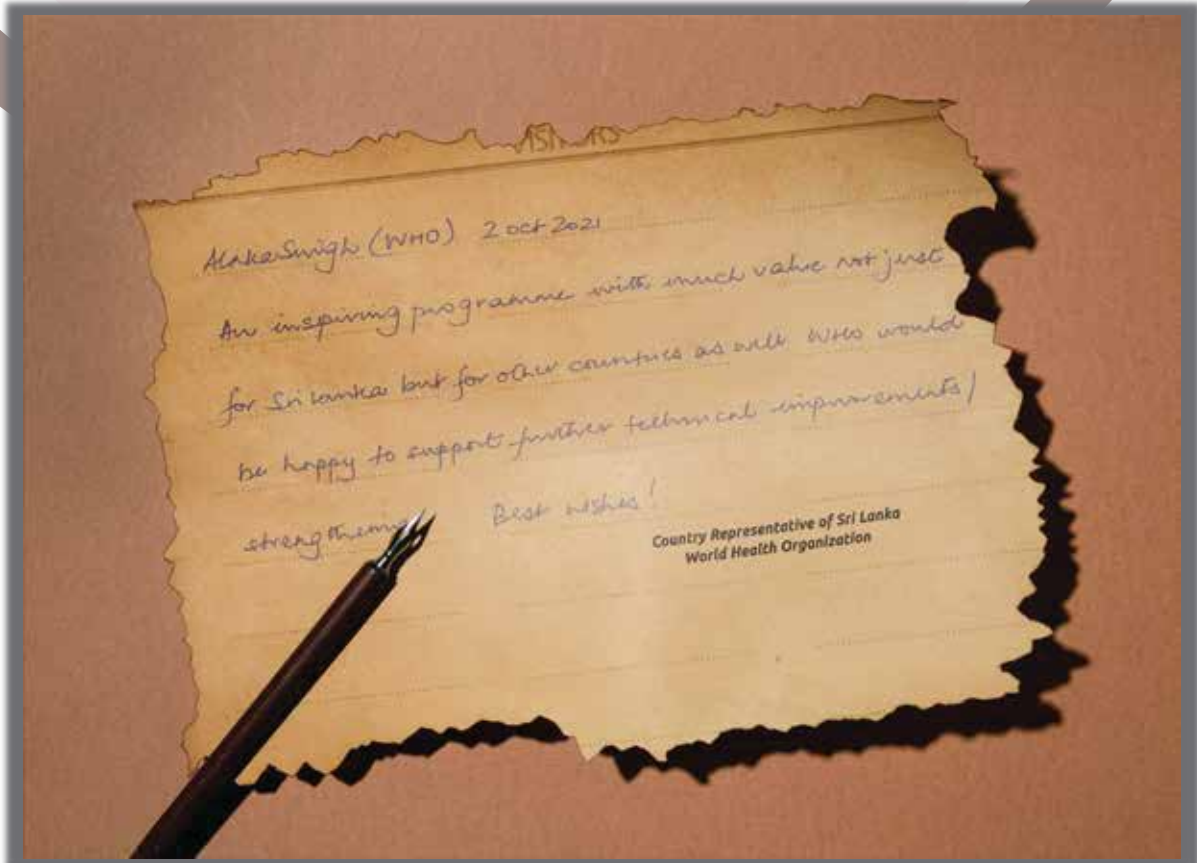 Alaka Singh (WHO) 2 oct 2021
An inspiring programme with much value not just
for Sri Lanka but for other countries as well WHO would
be happy to support further technical improvements/
strengthening Best wishes!
Country Representative of Sri Lanka
World Health Organization